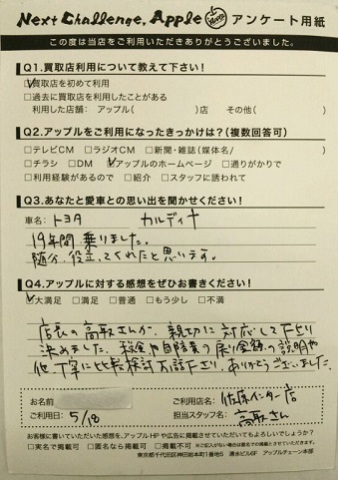 Next Challenge, Apple アンケート用紙
この度は当店をご利用いただきありがとうございました。
Q1.買取店利用について教えて下さい！
☑買取店を初めて利用
□過去に買取店を利用したことがある
利用した店舗： アップル（　　　）店　その他（　　　）
Q2.アップルをご利用になったきっかけは？（複数回答可）
□テレビCM □ラジオCM □新聞・雑誌（媒体名/　　　）
□チラシ □DM ☑アップルのホームページ □通りがかりで
□利用経験があるので □紹介 □スタッフに誘われて
Q3.あなたと愛車との思い出を聞かせください！
車名： トヨタ カルディナ
19年間乗りました。
随分、役立ってくれたと思います。
Q4.アップルに対する感想をぜひお書きください！
☑大満足 □満足 □普通 □もう少し □不満
店長の高取さんが、親切に対応して下さり
決めました。税金や自賠責の戻り金額の説明や
他、丁寧に 検討 下さり、ありがとうございました。
お名前
ご利用店名： 佐原インター店
ご利用日： 5/18
担当スタッフ名： 高取さん
お客様に書いていただいた感想を、アップルHPや広告に掲載させていただいてもよろしいでしょうか？
□実名で掲載可 □匿名なら掲載可 □掲載不可
東京都千代田区神田松本町1番地5 清水ビル6F アップルチェーン本部